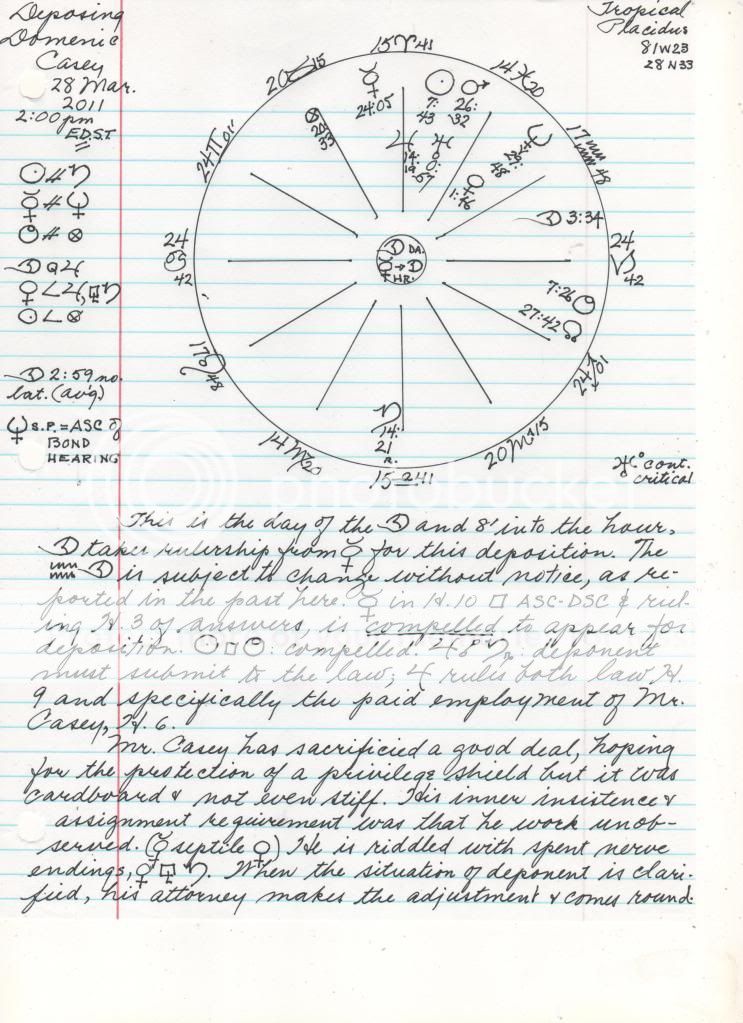 Deposing
Domenic
Casey
28 Mar.
2011
2:00pm
E.D.S.T.
Tropical
Placidus
81W23
28N33
15♈41
14♓20
17♒48
24♑42
24♐01
20♏15
15♎41
14♍20
17♌48
24♋42
24♊01
20♉15
☿ 24:05
☉ 7:43
♂ 26:32
♃ 14:19
♅ 0:57
♀ 1:46
☽ 3:34
7:26
27:42 ☊
♄ 14:21 R.
☽ DA.
☿→☽
HR.
☉#♄
☽Q♃
♀∠♃,⚼♄
☉∠⊗
☽ 2:59 no.
lat. (avg)
♆ S.P.=ASC of
BOND
HEARING
♅0° cont.
critical
This is the day of the ☽ and 8' into the hour,
☽ takes rulership from ☿ for this deposition. The
♒ ☽ is subject to change without notice, as re-
ported in the past here. ☿ in H.10 □ ASC-DSC & rul-
ing H.3 of answers, is compelled to appear for
deposition. ☉□ : compelled. ♃☍♄R: deponent
must submit to the law; ♃ rules both law H.
9 and specifically the paid employment of Mr.
Casey, H. 6.
Mr. Casey has sacrificied a good deal, hoping
for the protection of a privilege shield but it was
cardboard & not even stiff. His inner insistence &
assignment requirement was that he work unob-
served. (☿ septile ♀) He is riddled with spent nerve
endings, ☿⚼♄. When the situation of deponent is clari-
fied, his attorney makes the adjustment & comes round.